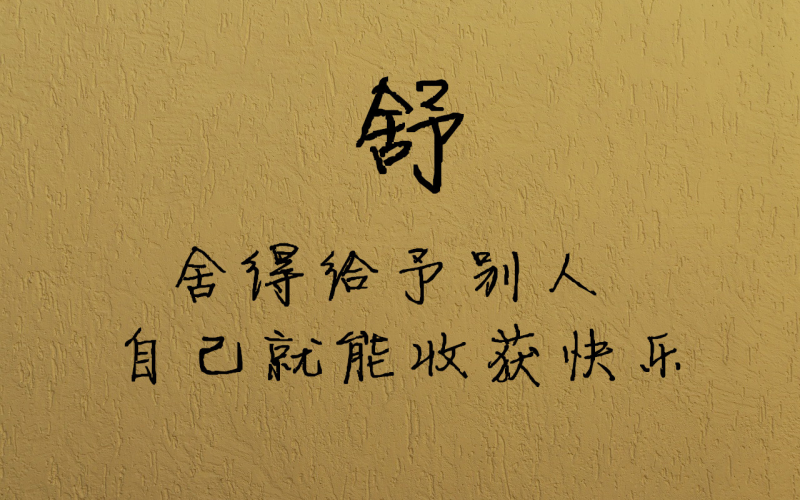 舒
舍得给予别人
自己就能收获快乐